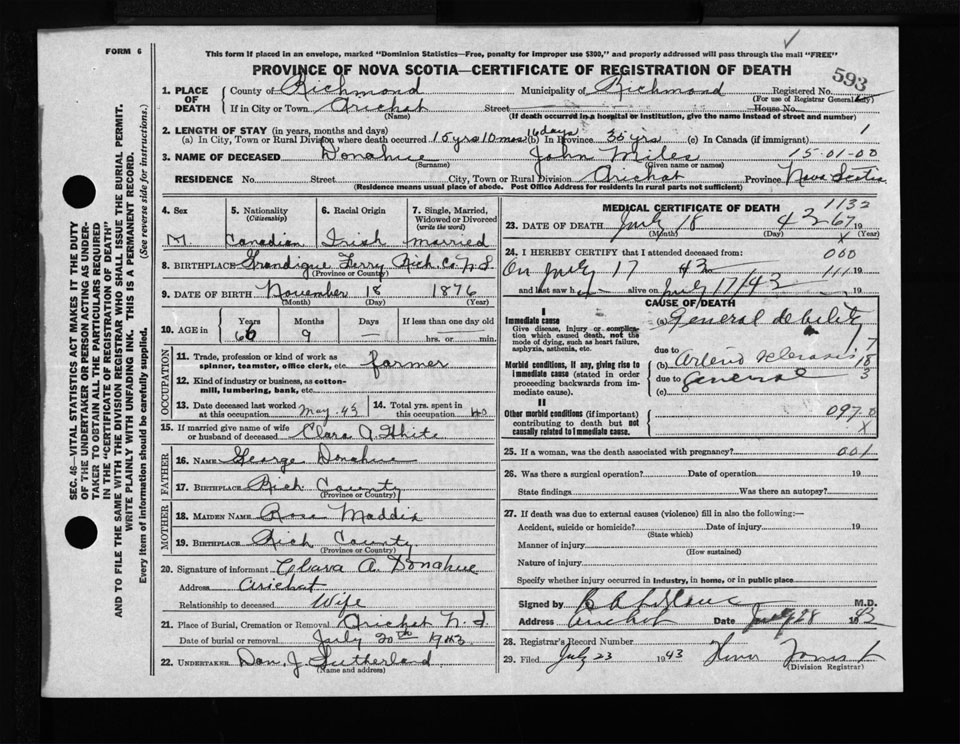 FORM 6
This form if placed in an envelope, marked "Dominion Statistics—Free, penalty for improper use $300," and properly addressed will pass through the mail "FREE"
PROVINCE OF NOVA SCOTIA—CERTIFICATE OF REGISTRATION OF DEATH
593
1. PLACE OF DEATH
County of Richmond Municipality of Richmond Registered No.
(For use of Registrar General only)
If in City or Town Arichat Street House No.
(Name) (If death occurred in a hospital or institution, give the name instead of street and number)
2. LENGTH OF STAY (in years, months and days)
(a) In City, Town or Rural Division where death occurred 15 yrs 10 mos 16 days (b) In Province 35 yrs (c) In Canada (if immigrant) 1
3. NAME OF DECEASED Donahue John Miles 15-01-00
(Surname) (Given name or names)
RESIDENCE No. Street City, Town or Rural Division Arichat Province Nova Scotia
(Residence means usual place of abode. Post Office Address for residents in rural parts not sufficient)
4. Sex
M
5. Nationality (Citizenship)
Canadian
6. Racial Origin
Irish
7. Single, Married, Widowed or Divorced (write the word)
married
8. BIRTHPLACE Grandique Ferry Rich. Co. N S
(Province or Country)
9. DATE OF BIRTH November 18 1876
(Month) (Day) (Year)
10. AGE in Years Months Days If less than one day old
66 9 – hrs. or min.
OCCUPATION
11. Trade, profession or kind of work as spinner, teamster, office clerk, etc. farmer
12. Kind of industry or business, as cotton-mill, lumbering, bank, etc.
13. Date deceased last worked at this occupation May. 43
14. Total yrs. spent in this occupation 40
15. If married give name of wife or husband of deceased Clara A. White
FATHER
16. NAME George Donahue
17. BIRTHPLACE Rich County
(Province or Country)
MOTHER
18. MAIDEN NAME Rose Maddix
19. BIRTHPLACE Rich County
(Province or Country)
20. Signature of informant Clara A. Donahue
Address Arichat
Relationship to deceased Wife
21. Place of Burial, Cremation or Removal Arichat N. S
Date of burial or removal July 20th 1943
22. UNDERTAKER Dan. J. Sutherland
(Name and address)
MEDICAL CERTIFICATE OF DEATH 1132
23. DATE OF DEATH July 18 43 67
(Month) (Day) x (Year)
24. I HEREBY CERTIFY that I attended deceased from: 000
On July 17 43 111 19
and last saw h alive on July 17/43 19
CAUSE OF DEATH
I
Immediate cause
Give disease, injury or complication which caused death, not the mode of dying, such as heart failure, asphyxia, asthenia, etc.
(a) General debility
due to
Morbid conditions, if any, giving rise to immediate cause (stated in order proceeding backwards from immediate cause).
(b) Arterio sclerosis
due to General
(c)
II
Other morbid conditions (if important) contributing to death but not causally related to immediate cause.
097.0
x
25. If a woman, was the death associated with pregnancy? 001
26. Was there a surgical operation? Date of operation 19
State findings Was there an autopsy?
27. If death was due to external causes (violence) fill in also the following:—
Accident, suicide or homicide? Date of injury 19
(State which)
Manner of injury
(How sustained)
Nature of injury
Specify whether injury occurred in industry, in home, or in public place
Signed by M.D.
Address Arichat Date July 28 1943
28. Registrar's Record Number
29. Filed July 23 1943
(Division Registrar)
SEC. 46—VITAL STATISTICS ACT MAKES IT THE DUTY
OF THE UNDERTAKER OR PERSON ACTING AS UNDER-
TAKER TO OBTAIN ALL THE PARTICULARS REQUIRED
IN THE "CERTIFICATE OF REGISTRATION OF DEATH"
AND TO FILE THE SAME WITH THE DIVISION REGISTRAR WHO SHALL ISSUE THE BURIAL PERMIT.
WRITE PLAINLY WITH UNFADING INK. THIS IS A PERMANENT RECORD.
Every item of information should be carefully supplied. (See reverse side for instructions.)